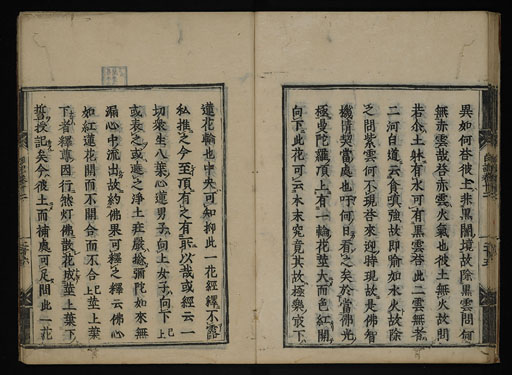 異如何答彼土非黑闇境故除黑雲問何
無赤雲哉答赤雲火氣也彼土無火故問
若尒土躰有水可有黑雲答此二雲無者
二河白道云貪嗔強故即喻如水火故除
之問紫雲何不現答來迎時現故是佛智
機情契當處也吁何日看之矣於當佛光
極曼陀羅頂上有一輪花莖大而色紅開
向下此花可云本末究竟其故極與㝡下
蓮花輪也中央可知抑此一花經釋不露
私推之今至頂有之有所以哉或經云一
切衆生八葉心蓮男子向上女子向下已上
或表之或遮之淨土莊嚴掄彌陀如來無
漏心中流出故約佛果可釋之釋云佛心
如紅蓮花開而不開合而不合已上莖上葉
下者釋尊因行然灯佛散花成莖上葉下
誓授記矣今彼土而補處可足問此一花